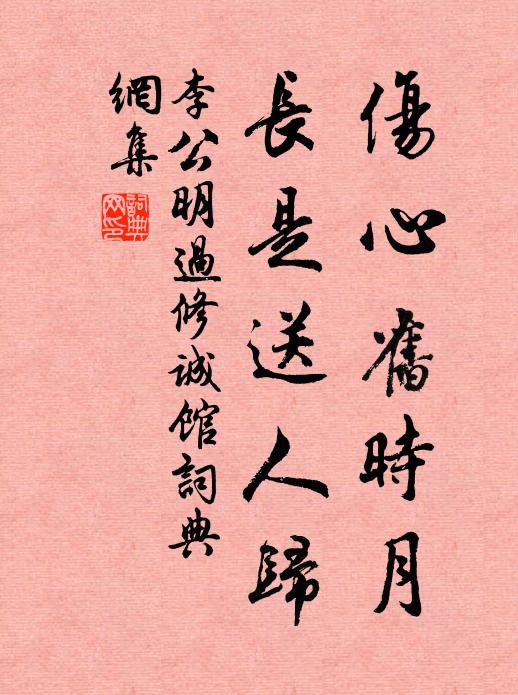 傷心舊時月
長是送人歸
李公明過修誠館詞典
網集
詞典
网印